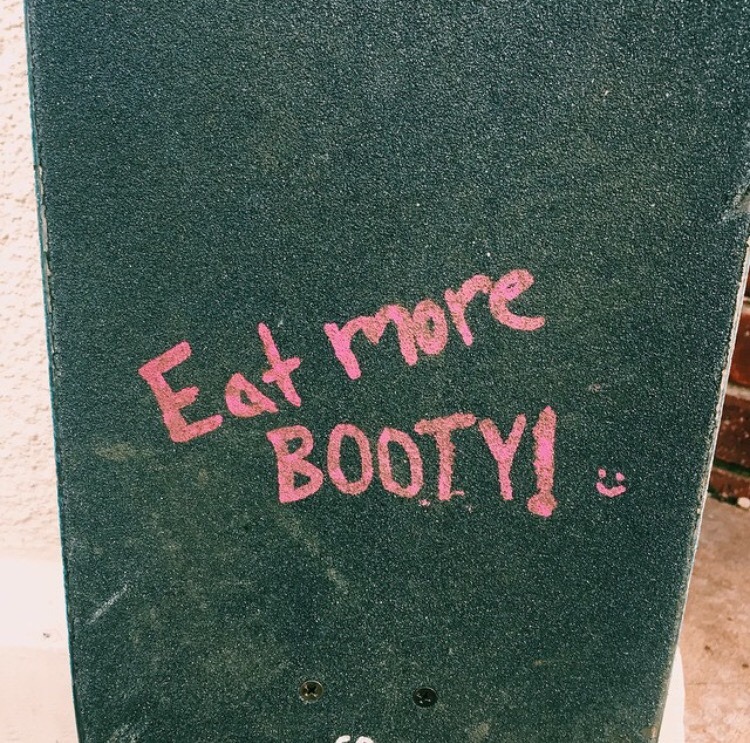 Eat more
BOOTY!